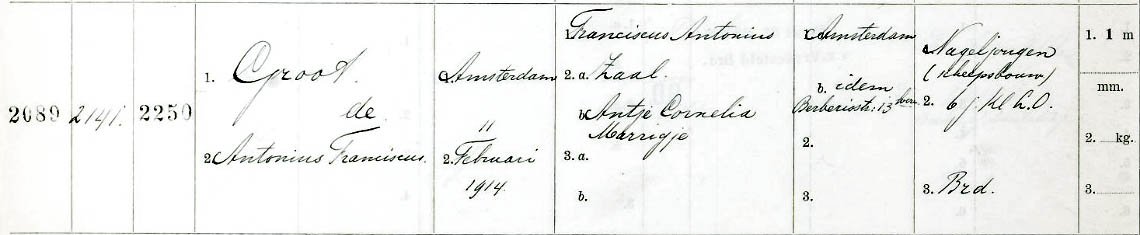 2089
2141.
2250
1. Groot.
de
2. Antonius Franciscus.
Amsterdam
11
2. Februari
1914.
Franciscus Antonius
2. a. Zaal.
b. Antje Cornelia
Marrigje
3. a.
b.
Amsterdam
b. idem
Berberisstr: 13
2.
3.
Nageljongen
(scheepsbouw)
2. 6 j. Kl L.O.
3. Brd.
1. 1 m
mm.
2. kg.
3.